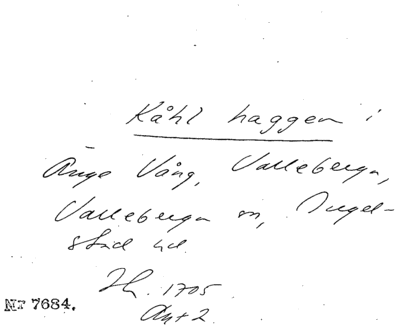 Kåhl haggen i
Ånga Vång, Valleberga,
Valleberga sn, Ingel-
stad hd.
Zh. 1705
Akt 2.
NF 7684.